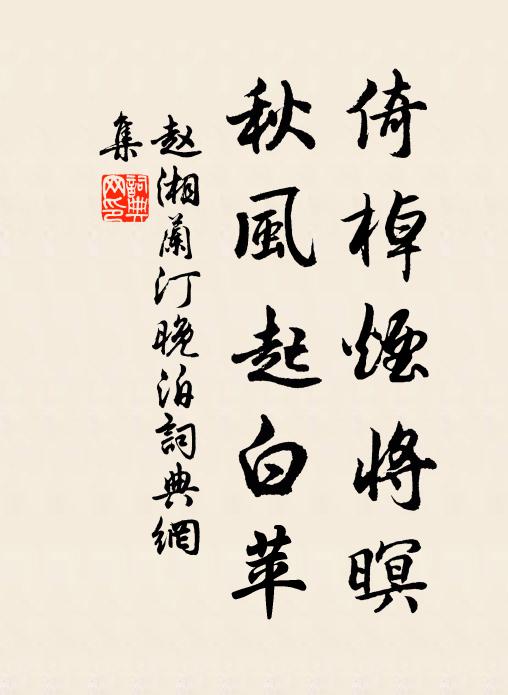 倚棹煙將暝
秋風起白苹
赵湘蘭汀晚泊詞典網
集
詞典
网印